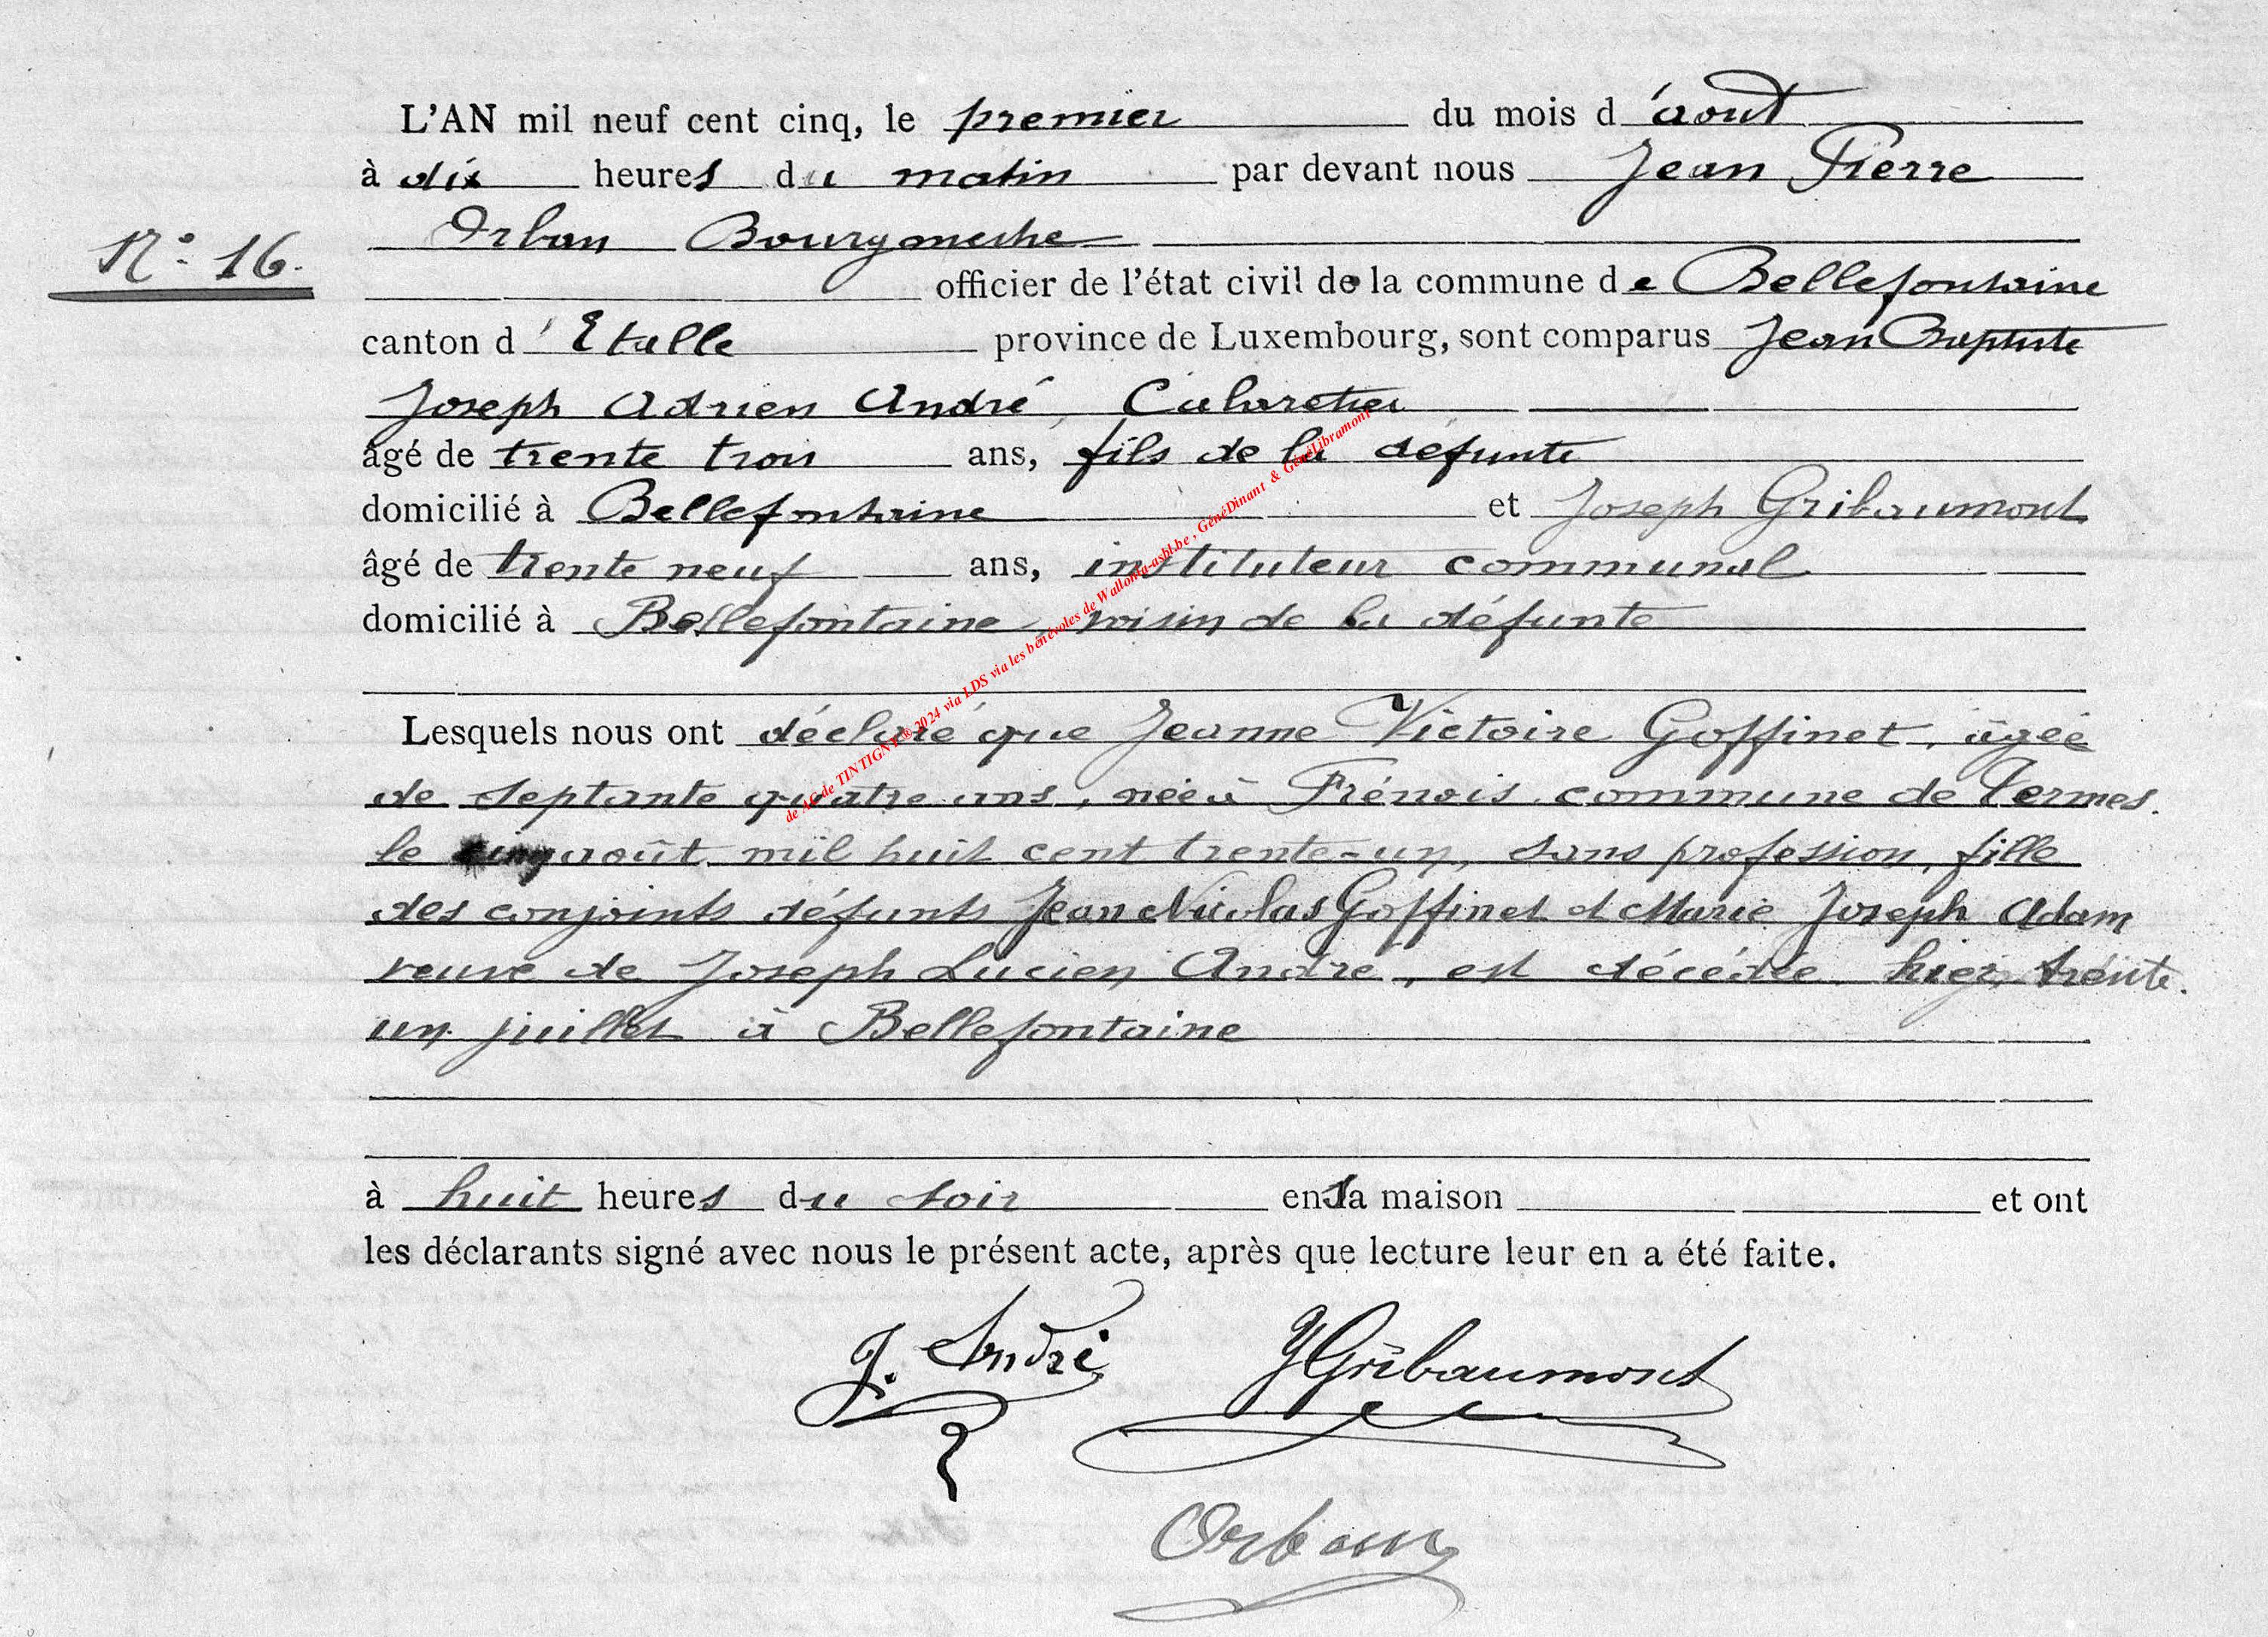 L'AN mil neuf cent cinq, le premier du mois d'août
à dix heures du matin par devant nous Jean Pierre
Orban Bourgmestre
N° 16.
officier de l'état civil de la commune de Bellefontaine
canton d'Etalle province de Luxembourg, sont comparus Jean Baptiste
Joseph Adrien André, Cabaretier
âgé de trente trois ans, fils de la défunte
domicilié à Bellefontaine et Joseph Gribaumont
âgé de trente neuf ans, instituteur communal
domicilié à Bellefontaine, voisin de la défunte
Lesquels nous ont déclaré que Jeanne Victoire Goffinet, âgée
de septante quatre ans, née à Frénois, commune de Termes.
le cinq août mil huit cent trente-un, sans profession, fille
des conjoints défunts Jean Nicolas Goffinet et Marie Joseph Adam
veuve de Joseph Lucien André, est décédée hier, trente.
un juillet à Bellefontaine
à huit heures du soir en sa maison et ont
les déclarants signé avec nous le présent acte, après que lecture leur en a été faite.
J. André JGribaumont
Orban
de AC de TINTIGNY © 2024 via LDS via les bénévoles de Wallonia-asbl.be, GénéDinant & GénéLibramont